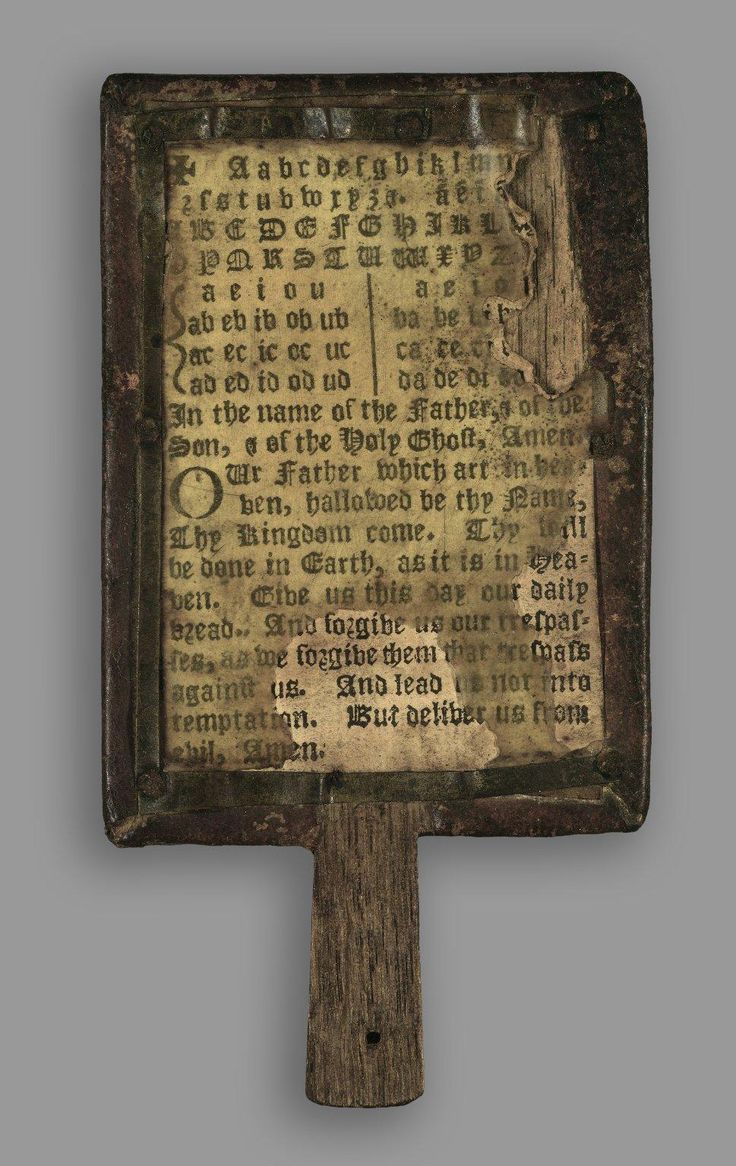 ✠ A a b c d e f g h i k l m n
ꝛ ſ s t u v w x y z &. ã ẽ i
B C D E F G H I K L
P Q R S T U W X Y Z
a e i o u | a e i o
ab eb ib ob ub | ba be bi b
ac ec ic oc uc | ca ce c
ad ed id od ud | da de di
In the name of the Father, & of the
Son, & of the Holy Ghoſt, Amen.
OUr Father which art in hea-
ven, hallowed be thy Name,
Thy Kingdom come. Thy will
be done in Earth, as it is in Hea-
ven. Give us this day our daily
bread.. And foꝛgive us our treſpaſ-
ſes, as we foꝛgive them that treſpaſs
againſt us. And lead us not into
temptation. But deliver us from
evil, Amen.